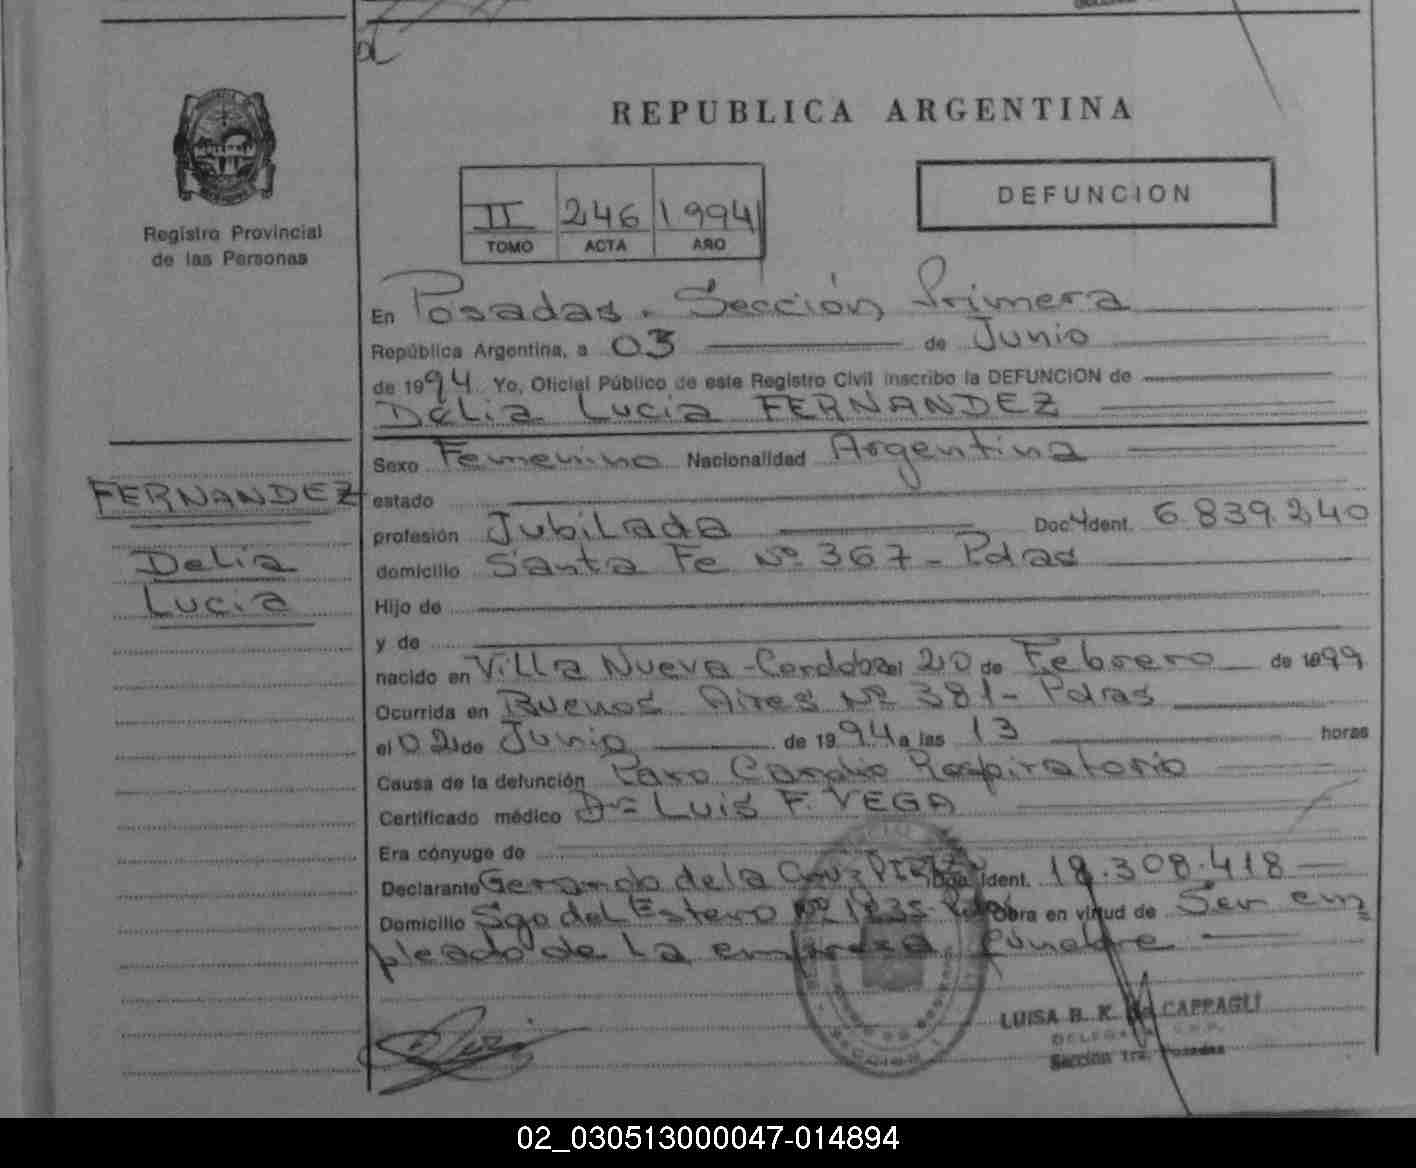 REPUBLICA ARGENTINA
Registro Provincial
de las Personas
II 246 1994
TOMO ACTA AÑO
DEFUNCION
En Posadas. Sección Primera
República Argentina, a 03 de Junio
de 1994. Yo, Oficial Público de este Registro Civil inscribo la DEFUNCION de
Delia Lucia FERNANDEZ
FERNANDEZ
Delia
Lucia
Sexo Femenino Nacionalidad Argentina
estado
profesión Jubilada Doc. Ident. 6.839.240
domicilio Santa Fe Nº 367 - Pdas
Hijo de
y de
nacido en Villa Nueva - Cordoba el 20 de Febrero de 1899
Ocurrida en Buenos Aires Nº 381 - Pdas
el 02 de Junio de 1994 a las 13 horas
Causa de la defunción Paro Cardio Respiratorio
Certificado médico Dr Luis F. VEGA
Era cónyuge de
Declarante Gerardo de la Cruz Doc. Ident. 18.308.418
Domicilio Sgo del Estero Nº Obra en virtud de Ser em
pleado de la empresa fúnebre
LUISA B. K. de CAPPAGLI
Sección 1ra. Posadas
02_030513000047-014894